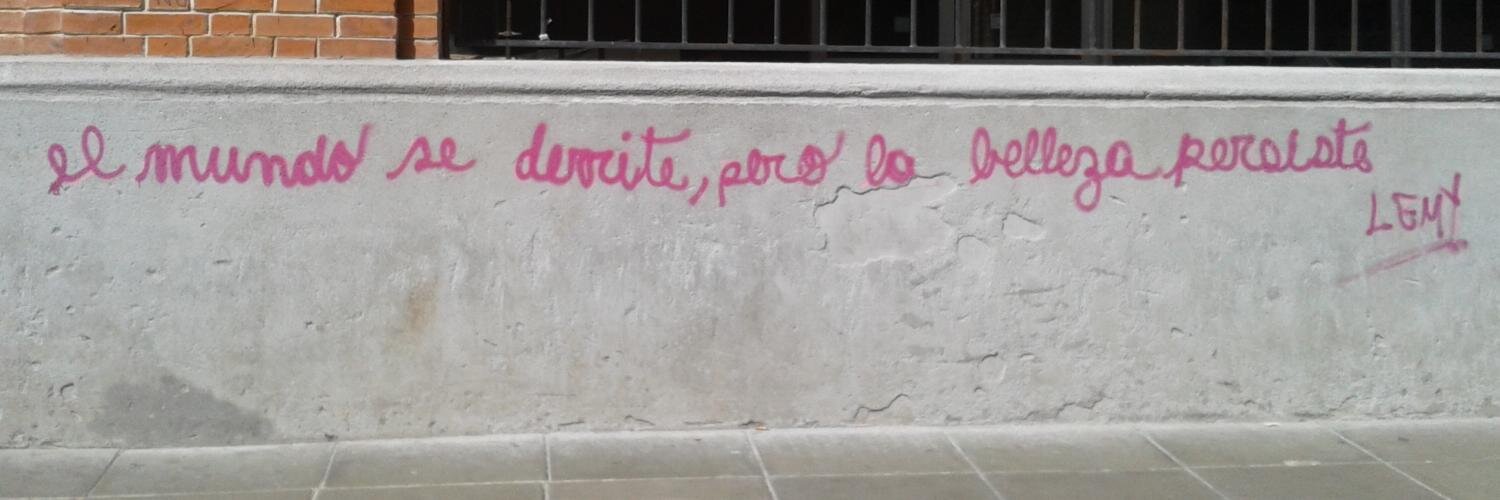 el mundo se derrite, pero la belleza persiste
LEMY